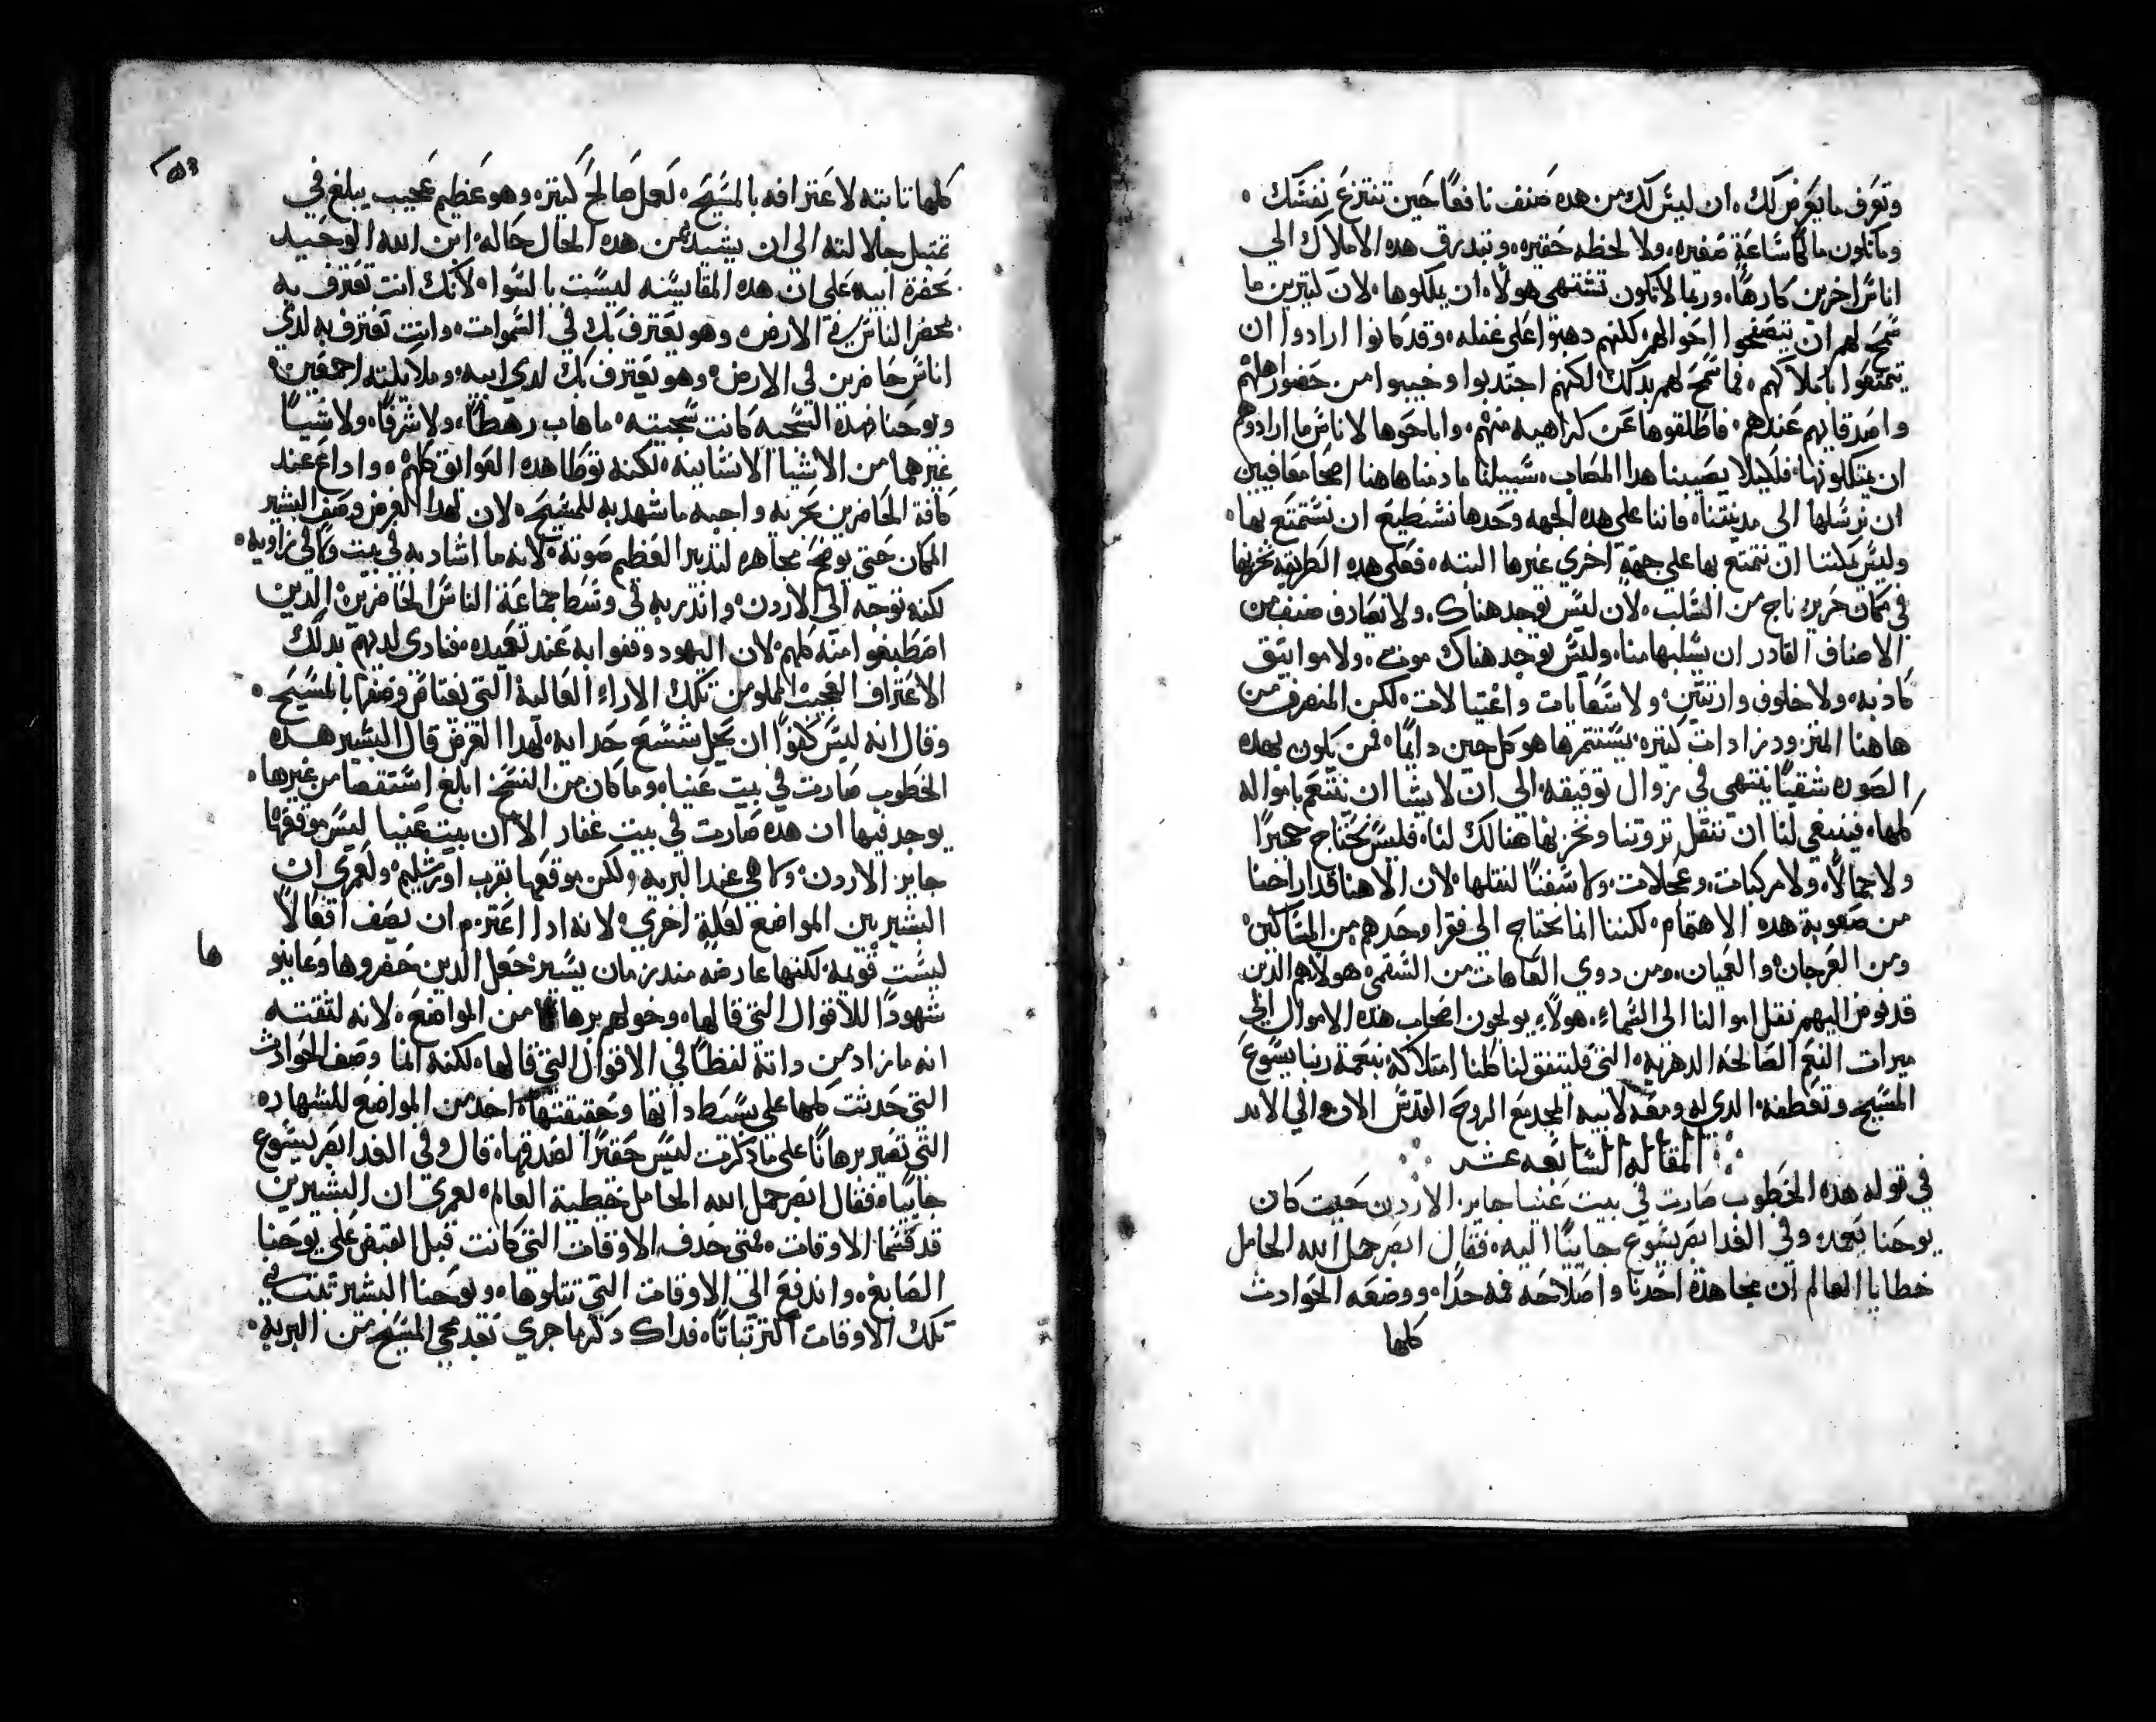 وتعرف ما يعرض لك، ان ليس لك من هده صنف نافعًا حين تنتزع نفسك ه
وما تلون مالكا ساعة صغيره، ولا لحظه حقيره، وتبدرق هده الاملاك الي
اناس اخرين كارهًا، وربما لا تكون تشتهي هولاء ان يملكوها، لان كتيرين ما
سمح لهم ان يتصفحوا احوالهم، لكنهم دهبوا على غفله، وقد كانوا ارادوا ان
يتمتعوا باملاكهم، فما سمح لهم بدلك، لكنهم اجتدبوا وخيبوا من حضور اهلهم
واصدقايهم عندهم، فاطلقوها عن كراهيه منهم، واباحوها لاناس ما ارادوهم
ان يمتلكونها، فلكيلا يصيبنا هدا المصاب، سبيلنا ما دمنا هاهنا اصحا معافيين
ان نرسلها الى مدينتنا، فاننا على هده الجهه وحدها نستطيع ان نستمتع بها ه
وليس يمكننا ان نتمتع بها على جهة اخري غيرها البته، فعلى هده الطريقه نخزنها
في مكان حريز ناج من السلب، لان ليس يوجد هناك، ولا يصادف صنف من
الاصناف القادر ان يسلبها منا، وليس يوجد هناك موت، ولا مواتيق
كادبه، ولا خلوف وارتتين، ولا سعايات واغتيالات، لكن المنصرف من
هاهنا المتزود زادات كتيره، يستتمرها هو كل حين دايمًا، فمن يكون بهده
الصوره شقيًا ينتهي في زوال توفيقه، الي ان لا يشا ان يتنعم بامواله
كلها، فينبغي لنا ان ننقل تروتنا ونخزنها هنالك لنا، فليس نحتاج حميرًا
ولا جمالاً، ولا مركبات، وعجلات، ولا سفنًا لنقلها، لان الاهنا قد اراحنا
من صعوبة هده الاهتمام، لكننا انما نحتاج الى فقرا وحدهم من المساكين،
ومن العرجان، والعميان، ومن دوي العاهات من السقم، هولاء هم الدين
قد فوض اليهم نقل اموالنا الى السماء، هولاء يولجون اصحاب هده الاموال الى
ميرات النعم الصالحه الدهريه، التي فليتفق لنا كلنا امتلاكه بنعمة ربنا يسوع
المسيح وتعطفه، الدي له ومعه لابيه المجد مع الروح القدس الان والي الابد
المقاله السابعه عشر
في قوله هده الخطوب صارت في بيت عنيا جايز الاردن حيت كان
يوحنا يعمد، وفي الغد ابصر يسوع جاييًا اليه، فقال ابصر حمل الله الحامل
خطايا العالم ان مجاهدة احدنا واصلاحه فمه حدًا، ووضعه الحوادث
كلها
كلها تابته لاعترافه بالمسيح، لعمل صالح كبير، وهو عظيم عجيب يبلغ في
تمتيل جلالته الي ان يشيد من هده الحال حاله، ابن الله الوحيد
بحضرة ابيه، على ان هده المقايسه ليست بالسوا، لانك انت تعترف به
بمحضر الناس في الارض، وهو يعترف بك في السموات، وانت تعترف به لدي
اناس حاضرين في الارض، وهو يعترف بك لدي ابيه، وملايكته اجمعين،
ويوحنا فهده السجيه كانت سجيته، ما هاب رهطًا، ولا شرفًا، ولا شيًا
غيرهما من الاشيا الانسانيه، لكنه توطا هده العوايق كلهم، واداع عند
كافة الحاضرين بحريه واجبه ما شهد به للمسيح، لان لهدا الغرض وصف البشير
المكان حتي يوضح مجاهره لندير العظيم صوته، لانه ما اشاد به في بيت ولا في زاويه ه
لكنه توجه الى الاردن، واندر به في وسط جماعة الناس الحاضرين، الدين
اصطبغوا منه كلهم، لان اليهود وقفوا به عند تعميده، فنادى لديهم بدلك
الاعتراف العجيب المملو من تلك الاراء العاليه التي يعتاص وصفها بالمسيح ه
وقال انه ليس كفوًا ان يحل شسع حدايه، لهدا الغرض قال البشير هده
الخطوب صارت في بيت عنيا، وما كان من النسخ ابلغ استقصا من غيرها ه
يوجد فيها ان هده صارت في بيت عنار الا ان بيت عنيا ليس موقعها
جايز الاردن، ولا هي عند البريه، ولكن موقعها بقرب اورشليم، ولعمري ان
البشير بين المواضع لعلة اخري، لانه ادا اعتزم ان يصف افعالاً
ليست قويمه، لكنها عارضه مند زمان يسير، جعل الدين حضروها وعاينو
ها
شهودًا للاقوال التي قالها، وخولهم برهانًا من المواضع، لانه لتقته
انه ما زاد من داته لفظًا في الاقوال التي قالها، لكنه انما وصف الحوادث
التي حدتت كلها على بسط داتها وحقيقتها، اخد من المواضع للشهاده
التي تصير برهانًا على ما دكرت ليس حقيرًا لصدقها، قال وفي الغد ابصر يسوع
جاييًا، فقال ابصر حمل الله الحامل خطية العالم، لعمري ان البشيرين
قد قسما الاوقات، فمتي حدف الاوقات التي كانت قبل القبض على يوحنا
الصابغ، واندفع الي الاوقات التي تتلوها، ويوحنا البشير تبت في
تلك الاوقات اكتر تباتًا، فداك دكر ما جري بعد مجي المسيح من البريه ه